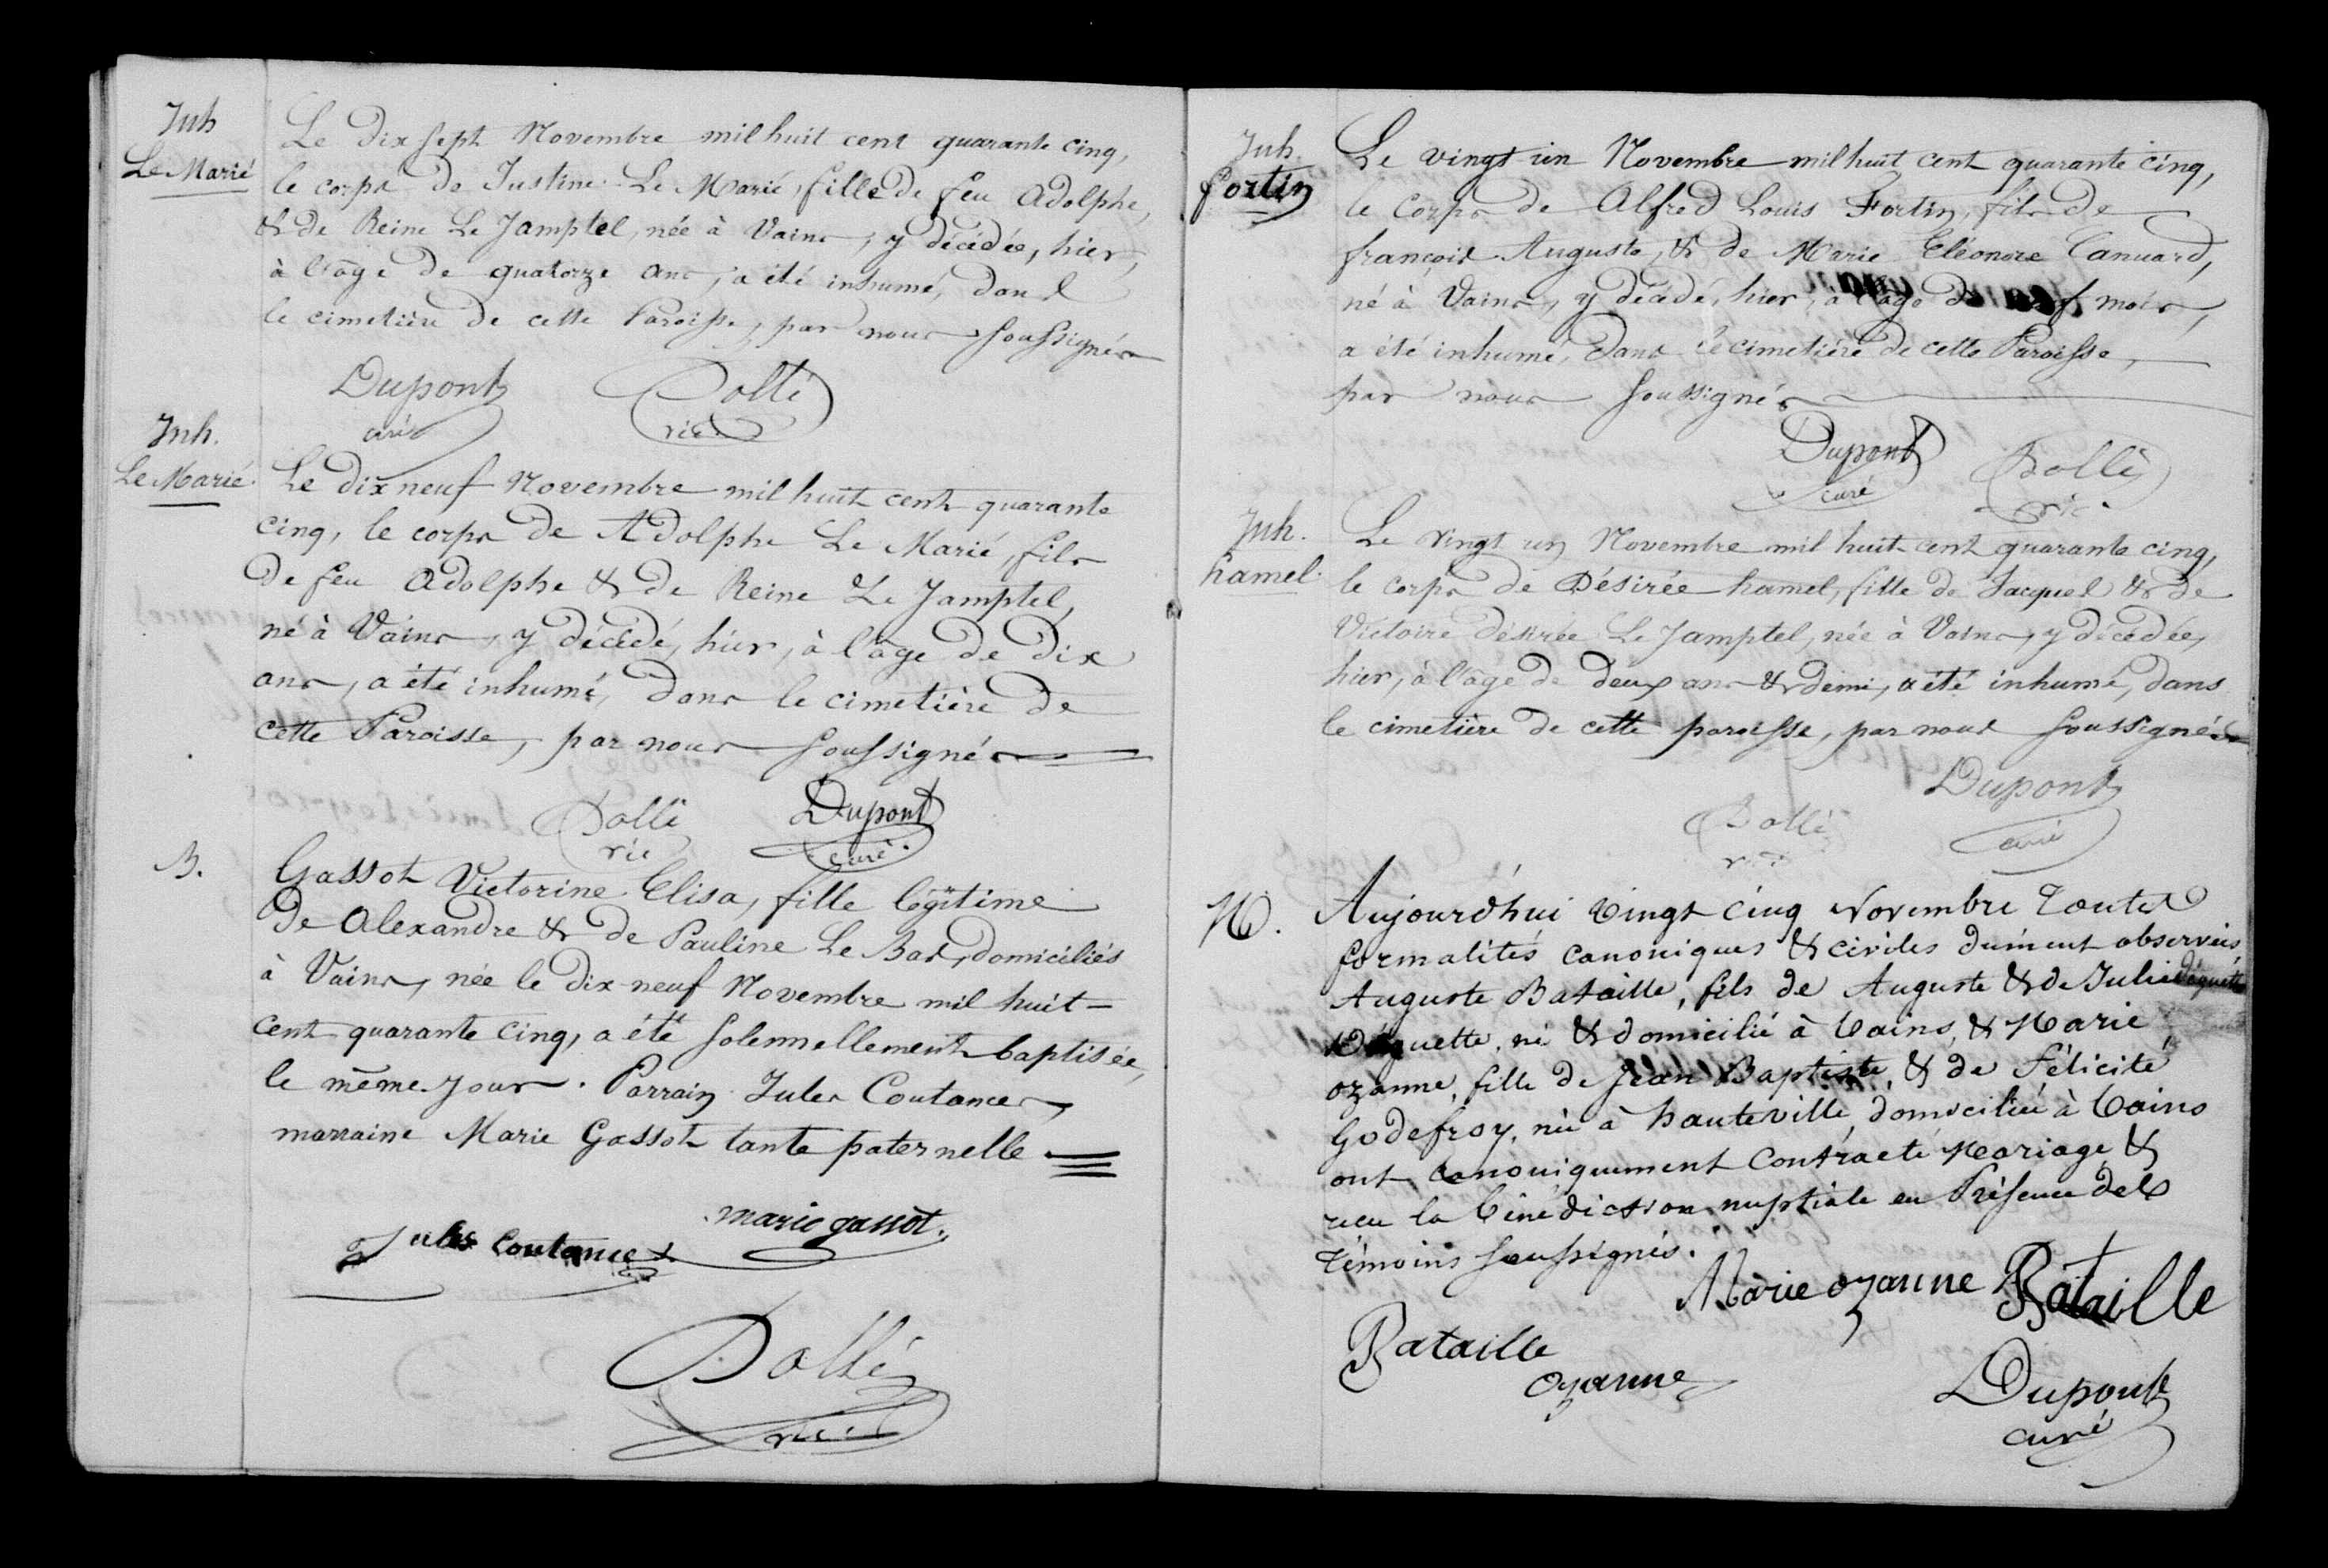 Inh
Le Marié
Le dix sept Novembre mil huit cent quarante cinq,
le corps de Justine Le Marié, fille de feu Adolphe,
& de Reine Le Jamptel, née à Vains, y décédée, hier,
à l'âge de quatorze ans, a été inhumé, dans
le cimetière de cette Paroisse, par nous soussignés
Dupont Dollé
curé vic.
Inh.
Le Marié
Le dix neuf Novembre mil huit cent quarante
cinq, le corps de Adolphe Le Marié, fils
de feu Adolphe & de Reine Le Jamptel,
né à Vains, y décédé, hier, à l'âge de dix
ans, a été inhumé, dans le cimetière de
cette Paroisse, par nous soussignés
Dollé Dupont
vic curé.
B.
Gassot Victorine Elisa, fille légitime
de Alexandre & de Pauline Le Bas, domiciliés
à Vains, née le dix-neuf Novembre mil huit-
cent quarante cinq, a été solennellement baptisée,
le même jour. Parrain Jules Coutances,
marraine Marie Gassot tante paternelle.
marie gassot.
Jules Coutances
Dollé
vic.
Inh.
fortin
Le vingt un Novembre mil huit cent quarante cinq,
le corps de Alfred Louis Fortin, fils de
françois Auguste, & de Marie Eléonore Canuard,
né à Vains, y décédé, hier, à l'âge de neuf mois,
a été inhumé, dans le cimetière de cette Paroisse,
par nous soussignés
Dupont Dollé
curé vic.
Inh.
hamel
Le vingt un Novembre mil huit cent quarante cinq,
le corps de Désirée hamel, fille de Jacques & de
Victoire désirée Le Jamptel, née à Vains, y décédée,
hier, à l'âge de deux ans & demi, a été inhumé, dans
le cimetière de cette paroisse, par nous soussignés
Dupont
Dollé curé
vic
M.
Aujourd'hui vingt cinq Novembre toutes
formalités canoniques & civiles dument observées
Auguste Bataille, fils de Auguste & de Julie
né & domicilié à Vains, & Marie
ozanne, fille de Jean Baptiste, & de Félicité
Godefroy, née à hauteville, domiciliée à Vains
ont canoniquement contracté Mariage &
recu la bénédiction nuptiale en Présence des
témoins soussignés.
Marie ozanne Bataille
Bataille
ozanne
Dupont
curé